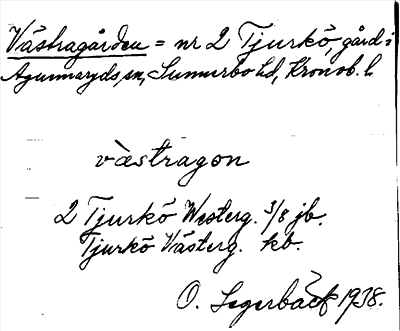 Västragården = nr 2 Tjurkö, gård i
Agunnaryds sn, Sunnerbo hd, Kronob. l.
västragon
2 Tjurkö Westerg. 3/8 jb.
Tjurkö Västerg. kb.
O. Segerbäck 1938.